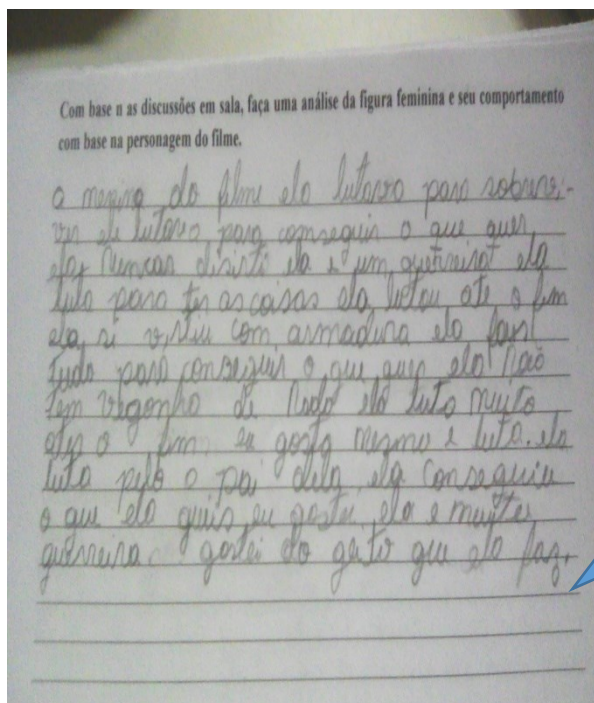 Com base n as discussões em sala, faça uma análise da figura feminina e seu comportamento
com base na personagem do filme.
o menina do filme ela lutava para sobrevi-
ver ele lutava para conseguir o que quer
ela nuncas disisti ela e um guerreira ela
luto para ter as coisas ela lutou ate o fim
ela si vistiu com armadura ela fas
tudo para conseguir o que quer ela não
tem vergonha de nada ela luta muito
o fim eu gosto mesmo e luta. ela
luta pelo o pai dela ela conseguiu
o que ela quis eu gostei ela e muito
guerreira gostei do geito que ela faz.